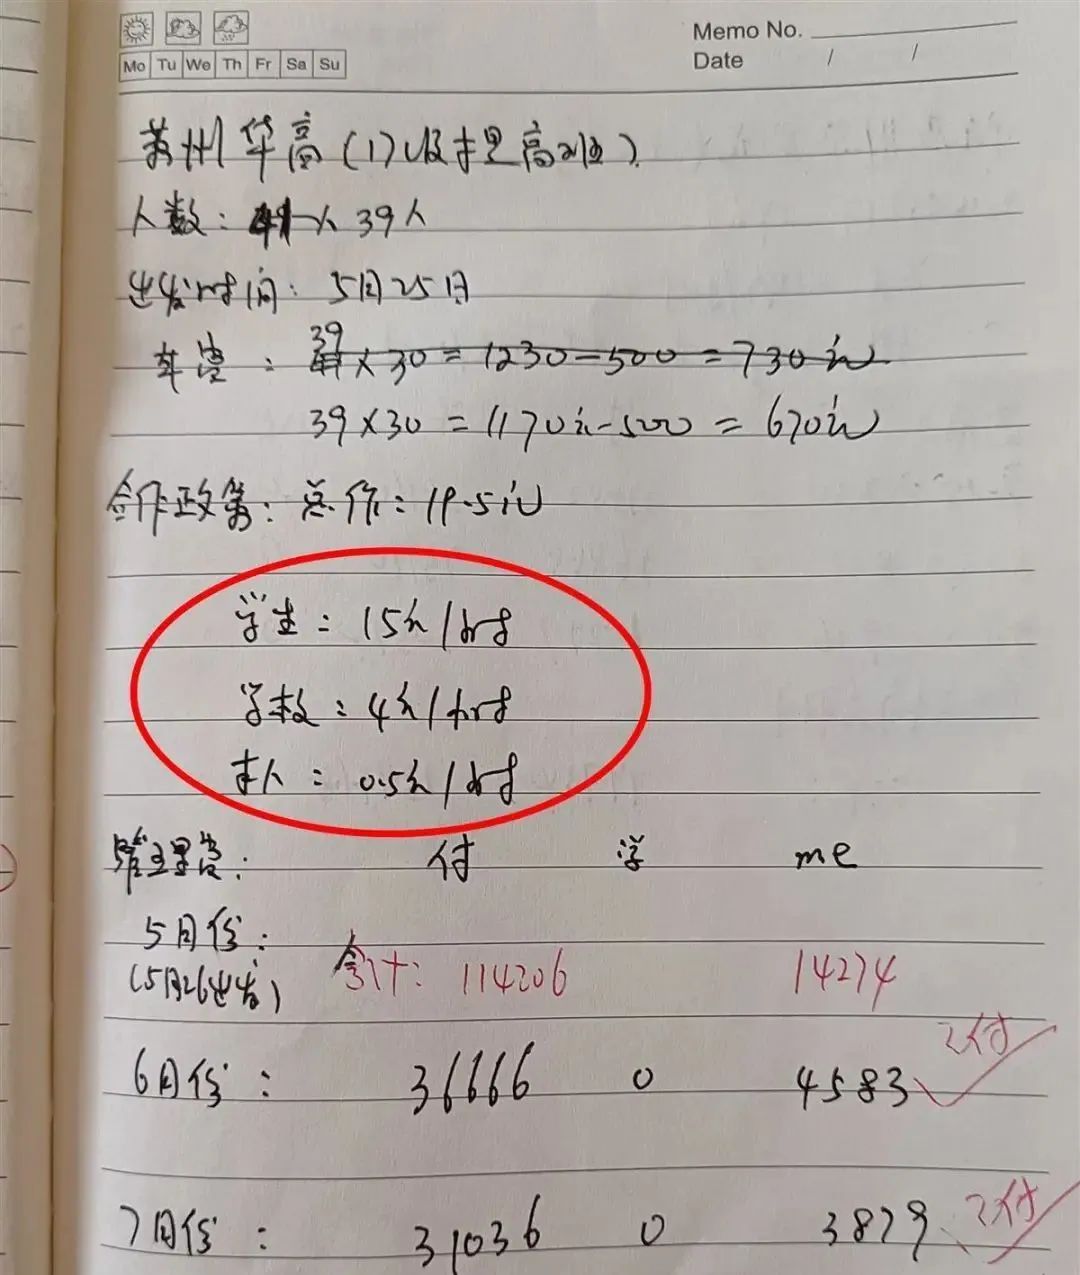 Memo No.
Mo Tu We Th Fr Sa Su
Date / /
苏州华高(17级提高班)
人数: 41人 39人
出发时间: 5月25日
39
车费: 41×30=1230-500=730元
39×30=1170元-500=670元
合作政策: 总价: 19.5元
学生: 15元/时
学校: 4元/时
本人: 0.5元/时
管理费: 付 学 me
5月份:
(5月26出发) 合计: 114206 14274
已付
6月份: 36666 0 4583
7月份: 31036 0 3879 已付